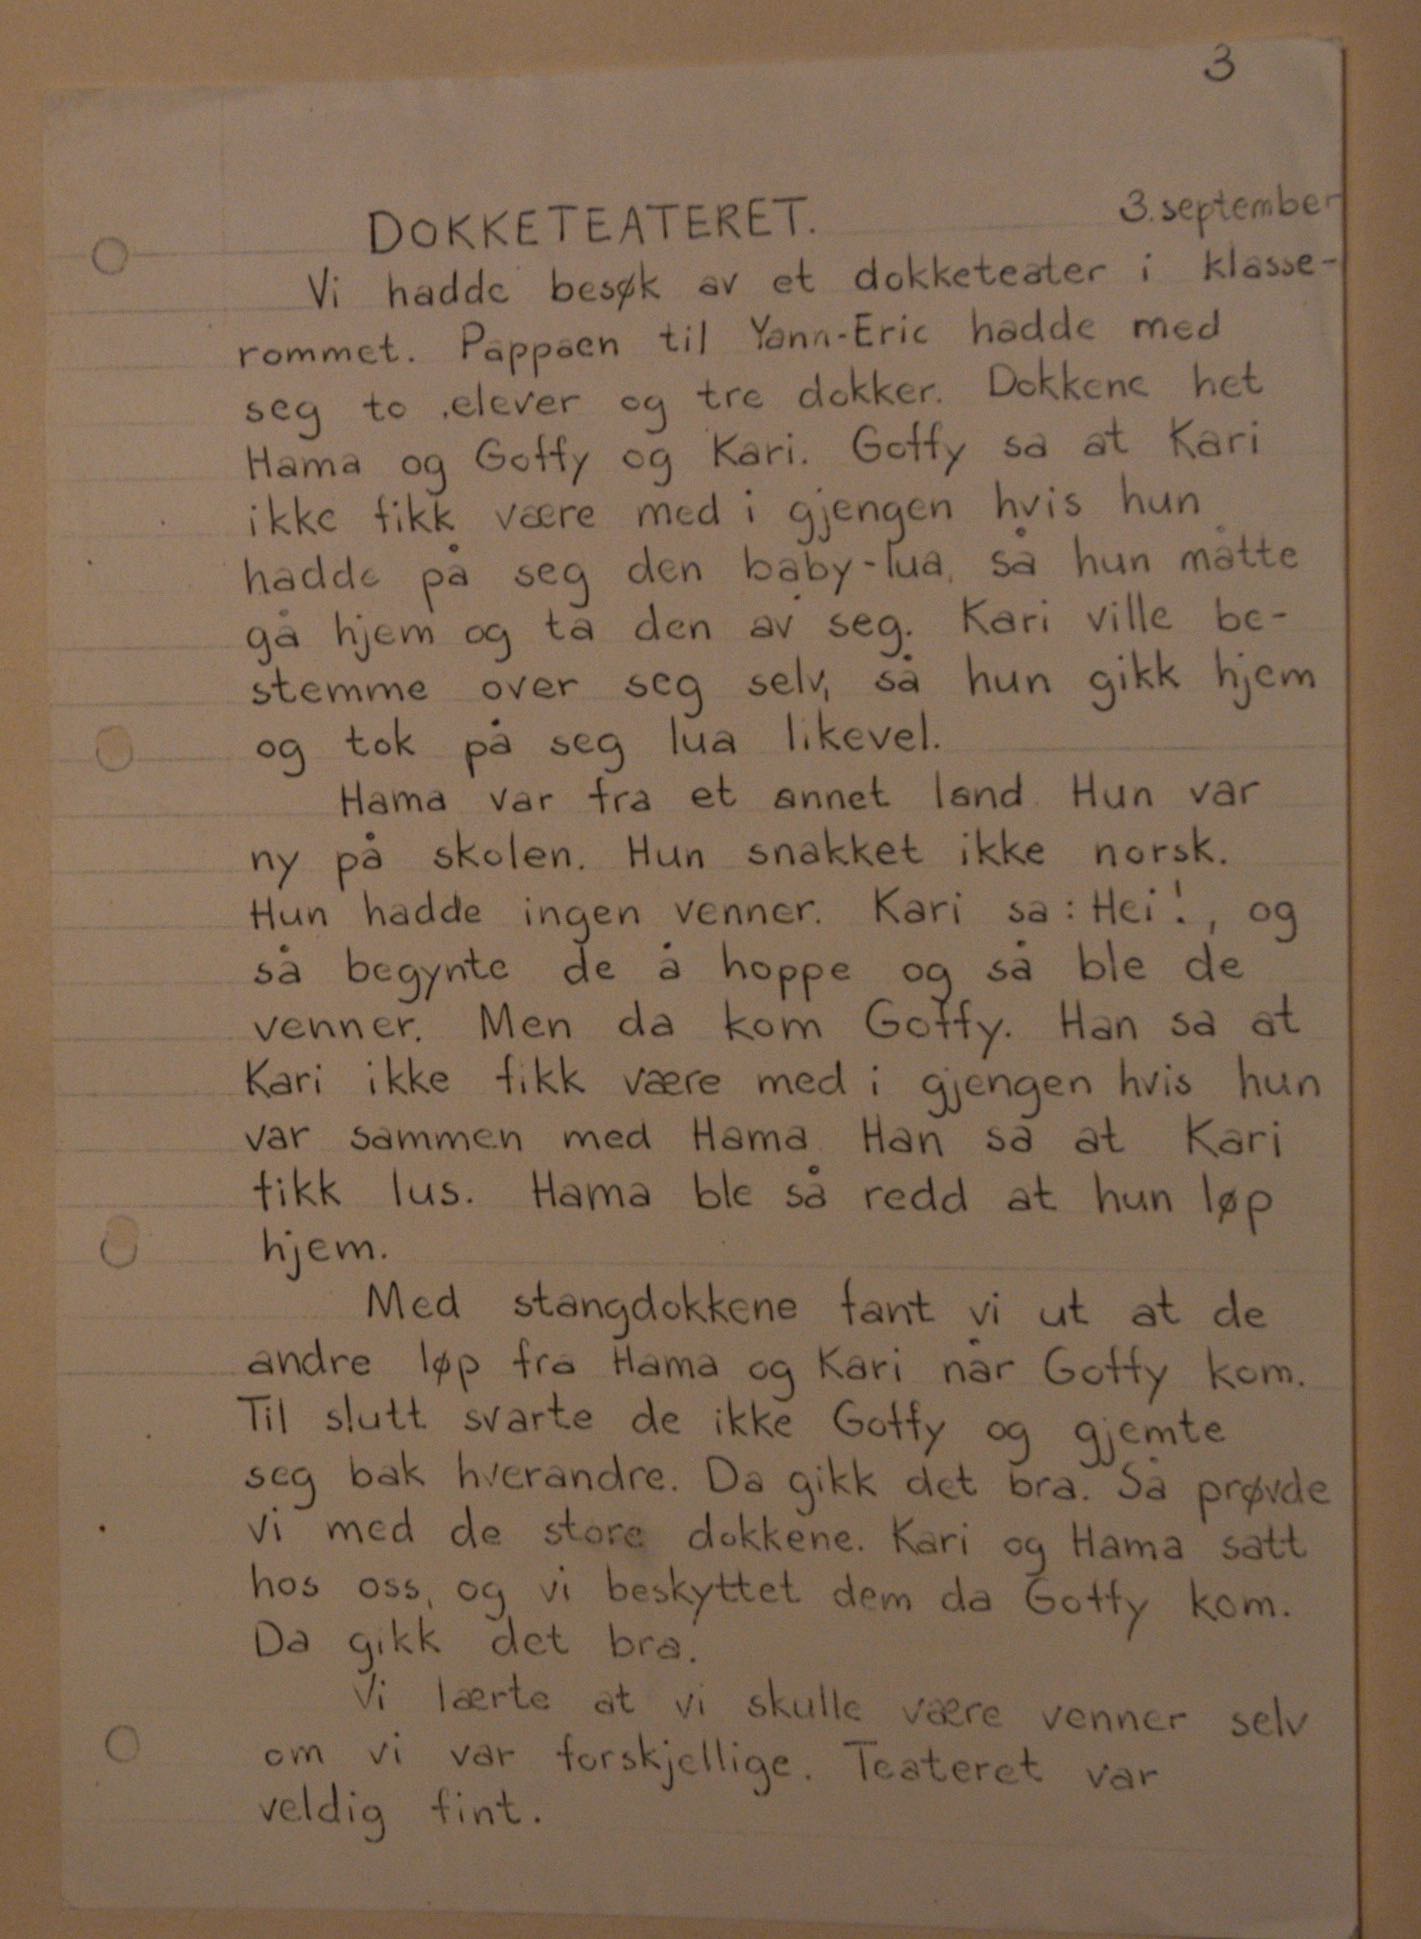 3
3. september
DOKKETEATERET.
Vi hadde besøk av et dokketeater i klasse-
rommet. Pappaen til Yann-Eric hadde med
seg to elever og tre dokker. Dokkene het
Hama og Goffy og Kari. Goffy sa at Kari
ikke fikk være med i gjengen hvis hun
hadde på seg den baby-lua, så hun måtte
gå hjem og ta den av seg. Kari ville be-
stemme over seg selv, så hun gikk hjem
og tok på seg lua likevel.
Hama var fra et annet land. Hun var
ny på skolen. Hun snakket ikke norsk.
Hun hadde ingen venner. Kari sa: Hei!, og
så begynte de å hoppe og så ble de
venner. Men da kom Goffy. Han sa at
Kari ikke fikk være med i gjengen hvis hun
var sammen med Hama. Han sa at Kari
fikk lus. Hama ble så redd at hun løp
hjem.
Med stangdokkene fant vi ut at de
andre løp fra Hama og Kari når Goffy kom.
Til slutt svarte de ikke Goffy og gjemte
seg bak hverandre. Da gikk det bra. Så prøvde
vi med de store dokkene. Kari og Hama satt
hos oss, og vi beskyttet dem da Goffy kom.
Da gikk det bra.
Vi lærte at vi skulle være venner selv
om vi var forskjellige. Teateret var
veldig fint.